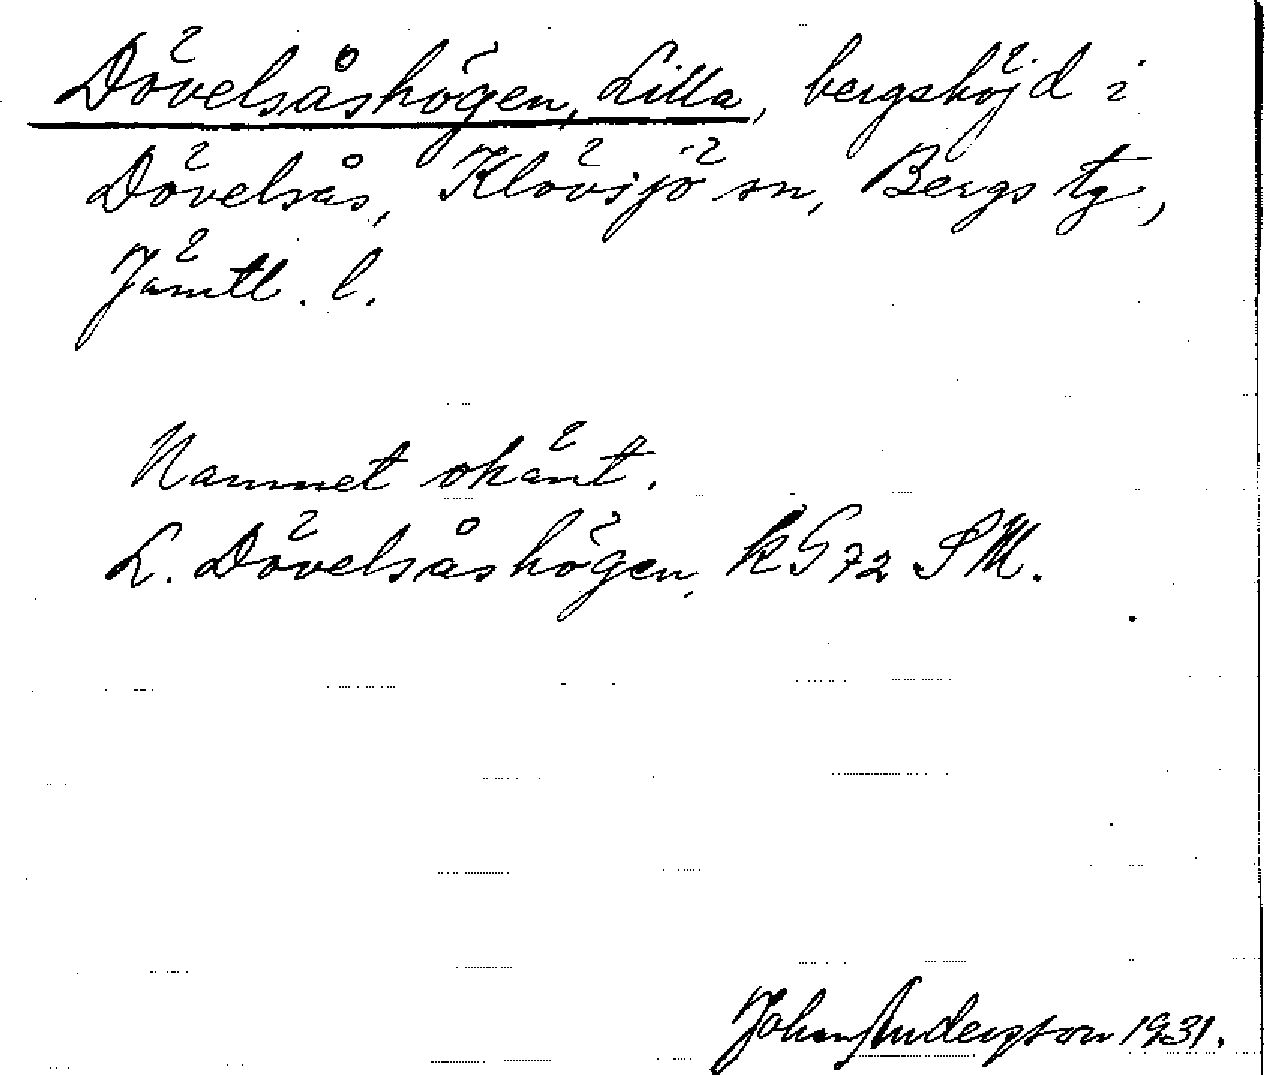 Dövelsåshögen, Lilla, bergshöjd i
Dövelsås, Klövsjö sn, Bergs tg,
Jämtl. l.
Namnet okänt.
L. Dövelsåshögen, kG72 SM.
Johan Anderzson 1931.